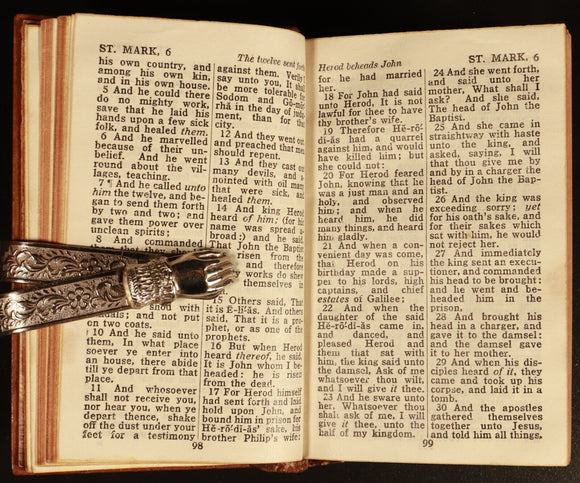 ST. MARK, 6
The twelve sent forth
his own country, and
among his own kin,
and in his own house.
5 And he could there
do no mighty work,
save that he laid his
hands upon a few sick
folk, and healed them.
6 And he marvelled
because of their un-
belief. And he went
round about the vil-
lages, teaching.
7 ¶ And he called unto
him the twelve, and be-
gan to send them forth
by two and two; and
gave them power over
unclean spirits;
8 And commanded
they
shod with
sandals; and not put
on two coats.
10 And he said unto
them, In what place
soever ye enter into
an house, there abide
till ye depart from that
place.
11 And whosoever
shall not receive you,
nor hear you, when ye
depart thence, shake
off the dust under your
feet for a testimony
98
against them. Verily I
say unto you, It shall
be more tolerable for
Sodom and Gō-mŏr-
rhā in the day of judg-
ment, than for that
city.
12 And they went out,
and preached that men
should repent.
13 And they cast out
many devils, and a-
nointed with oil many
that were sick, and
healed them.
14 And king Herod
heard of him; (for his
name was spread a-
broad:) and he said,
That John the Baptist
risen from the
and therefore
works do shew
themselves in
15 Others said, That
it is Ē-lī'ăs. And others
said, That it is a pro-
phet, or as one of the
prophets.
16 But when Herod
heard thereof, he said,
It is John whom I be-
headed: he is risen
from the dead.
17 For Herod himself
had sent forth and laid
hold upon John, and
bound him in prison for
Hē-rō'dĭ-ăs' sake, his
brother Philip's wife:
Herod beheads John
ST. MARK, 6
for he had married
her.
18 For John had said
unto Herod, It is not
lawful for thee to have
thy brother's wife.
19 Therefore Hē-rō'-
dĭ-ăs had a quarrel
against him, and would
have killed him; but
she could not:
20 For Herod feared
John, knowing that he
was a just man and an
holy, and observed
him; and when he
heard him, he did
many things, and heard
him gladly.
21 And when a con-
venient day was come,
that Herod on his
birthday made a sup-
per to his lords, high
captains, and chief
estates of Galilee;
22 And when the
daughter of the said
Hē-rō'dĭ-ăs came in,
and danced, and
pleased Herod and
them that sat with
him, the king said unto
the damsel, Ask of me
whatsoever thou wilt,
and I will give it thee.
23 And he sware unto
her, Whatsoever thou
shalt ask of me, I will
give it thee, unto the
half of my kingdom.
24 And she went forth,
and said unto her
mother, What shall I
ask? And she said,
The head of John the
Baptist.
25 And she came in
straightway with haste
unto the king, and
asked, saying, I will
that thou give me by
and by in a charger the
head of John the Bap-
tist.
26 And the king was
exceeding sorry; yet
for his oath's sake, and
for their sakes which
sat with him, he would
not reject her.
27 And immediately
the king sent an execu-
tioner, and commanded
his head to be brought:
and he went and be-
headed him in the
prison,
28 And brought his
head in a charger, and
gave it to the damsel:
and the damsel gave
it to her mother.
29 And when his dis-
ciples heard of it, they
came and took up his
corpse, and laid it in a
tomb.
30 And the apostles
gathered themselves
together unto Jesus,
and told him all things,
99